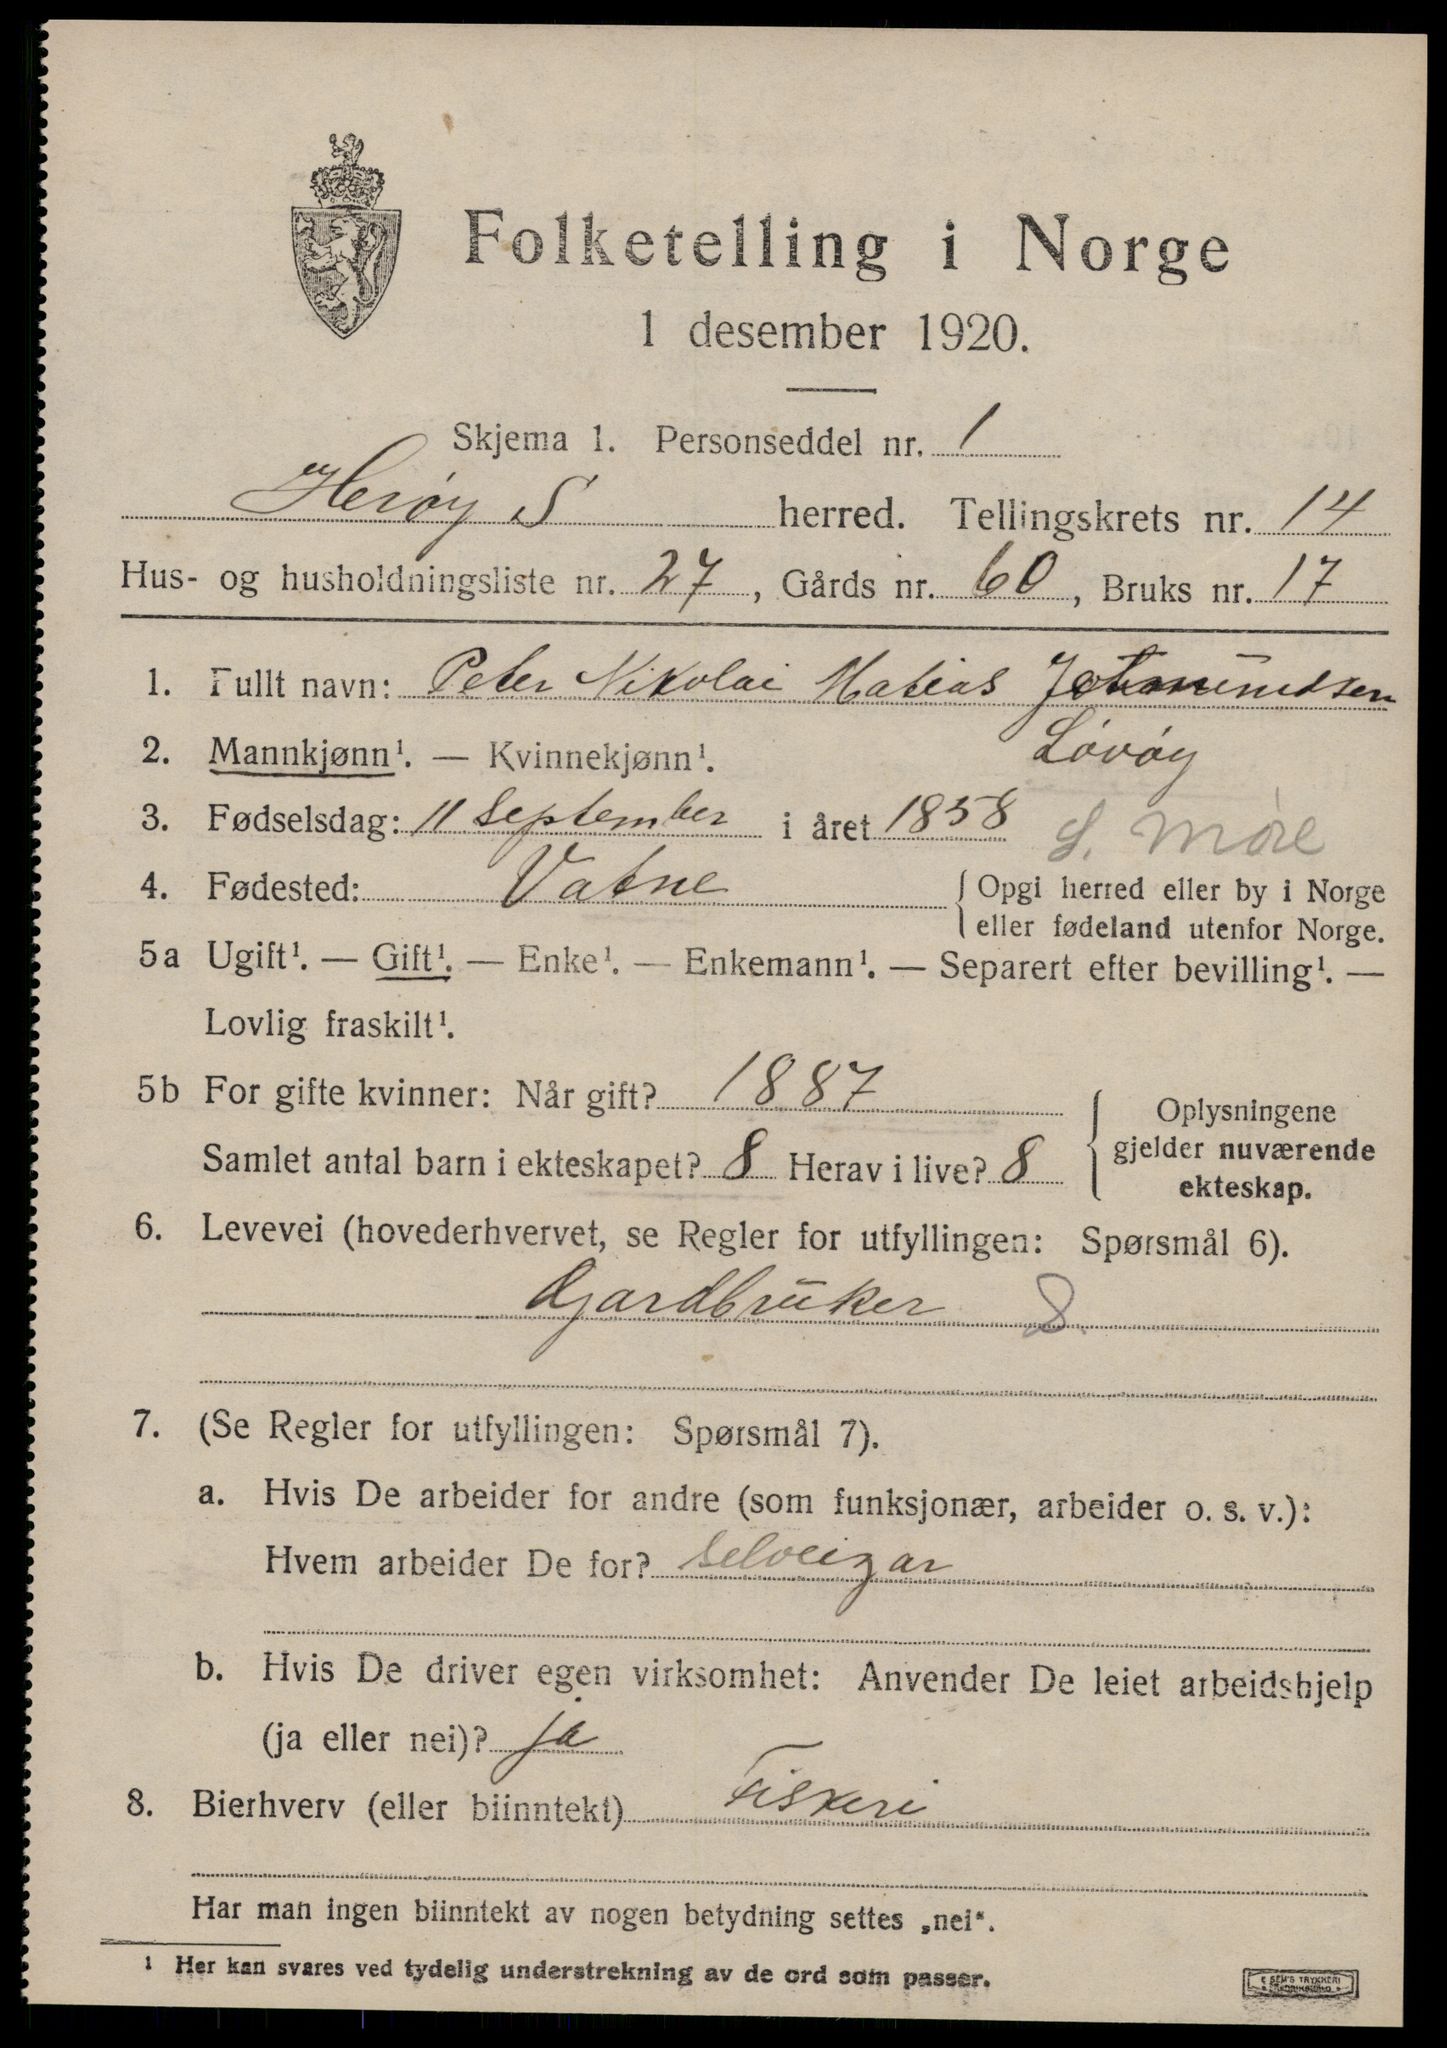 Folketelling i Norge
1 desember 1920.
Skjema 1. Personseddel nr. 1
Herøy S herred. Tellingskrets nr. 14
Hus- og husholdningsliste nr. 27, Gårds nr. 60, Bruks nr. 17
1. Fullt navn: Peter Nikolai Matias
Løvøy
2. Mannkjønn¹. — Kvinnekjønn¹.
3. Fødselsdag: 11 September i året 1858
S. Møre
4. Fødested: Vatne {Opgi herred eller by i Norge
eller fødeland utenfor Norge.
5a Ugift¹. — Gift¹. — Enke¹. — Enkemann¹. — Separert efter bevilling¹. —
Lovlig fraskilt¹.
5b For gifte kvinner: Når gift? 1887
Samlet antal barn i ekteskapet? 8 Herav i live? 8
{Oplysningene
gjelder nuværende
ekteskap.
6. Levevei (hovederhvervet, se Regler for utfyllingen: Spørsmål 6).
Gardbrüker S.
7. (Se Regler for utfyllingen: Spørsmål 7).
a. Hvis De arbeider for andre (som funksjonær, arbeider o. s. v.):
Hvem arbeider De for? selveigar
b. Hvis De driver egen virksomhet: Anvender De leiet arbeidshjelp
(ja eller nei)? ja
8. Bierhverv (eller biinntekt) Fiskeri
Har man ingen biinntekt av nogen betydning settes „nei“.
¹ Her kan svares ved tydelig understrekning av de ord som passer.
E SEM'S TRYKKERI